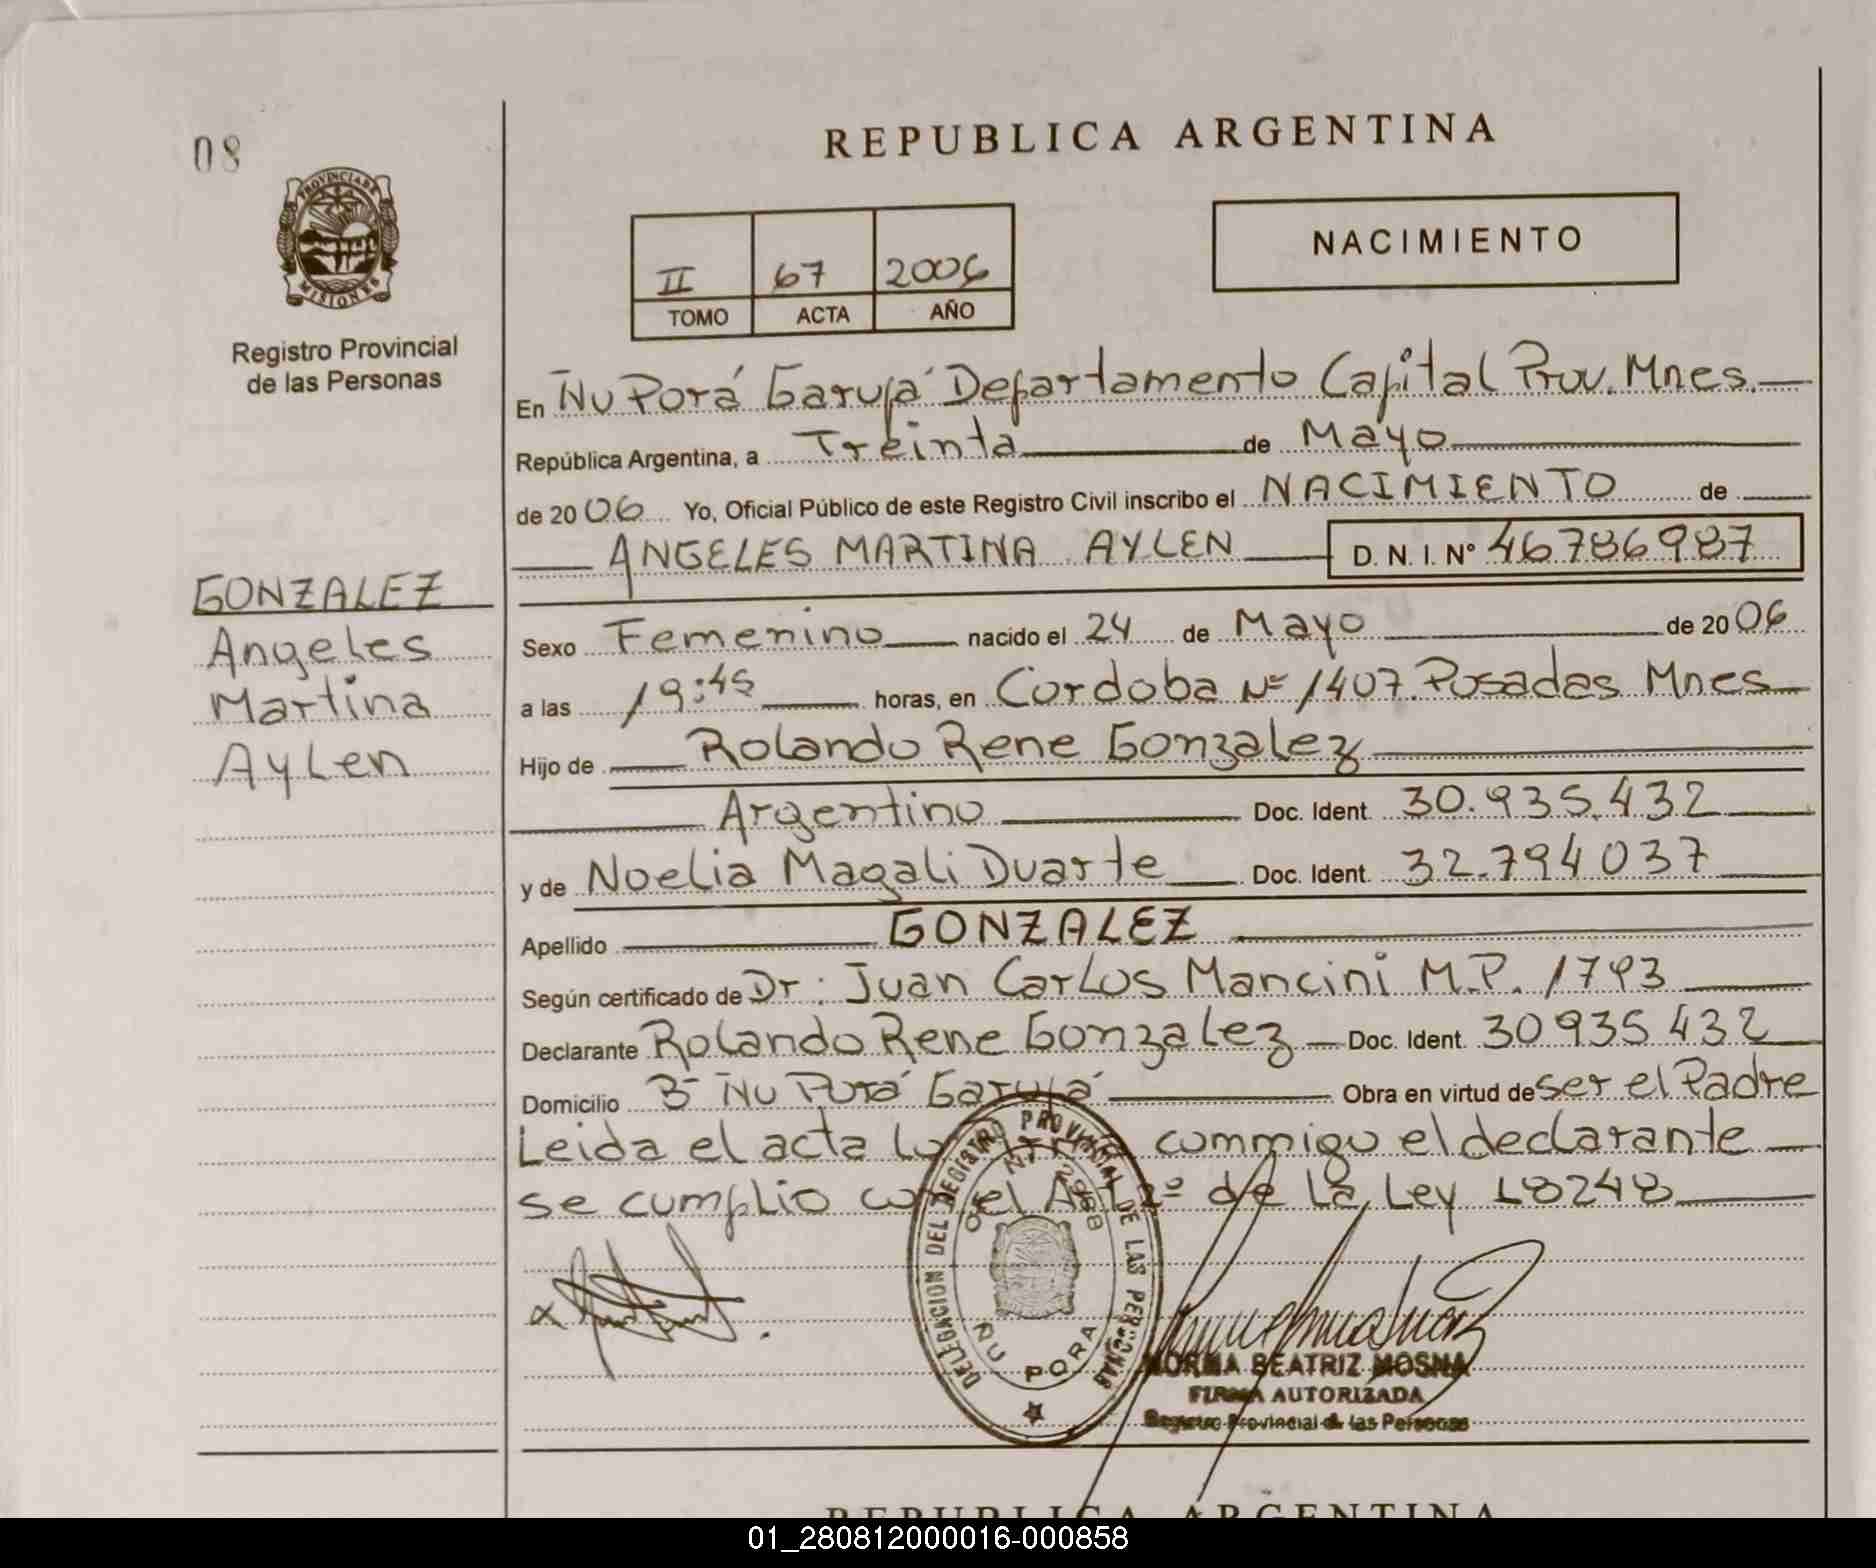 08
PROVINCIA DE
MISIONES
Registro Provincial
de las Personas
GONZALEZ
Angeles
Martina
Aylen
REPUBLICA ARGENTINA
II 67 2006
TOMO ACTA AÑO
NACIMIENTO
En Ñu Porá Garupá Departamento Capital Prov. Mnes.
República Argentina, a Treinta de Mayo
de 2006 Yo, Oficial Público de este Registro Civil inscribo el NACIMIENTO de
ANGELES MARTINA AYLEN D. N. I. N° 46786987
Sexo Femenino nacido el 24 de Mayo de 2006
a las 19:45 horas, en Cordoba Nº 1407 Posadas Mnes
Hijo de Rolando Rene Gonzalez
Argentino Doc. Ident. 30.935.432
y de Noelia Magali Duarte Doc. Ident. 32.794037
Apellido GONZALEZ
Según certificado de Dr: Juan Carlos Mancini M.P. 1793
Declarante Rolando Rene Gonzalez Doc. Ident. 30935432
Domicilio Bº Ñu Porá Garupá Obra en virtud de ser el Padre
Leida el acta conmigo el declarante
se cumplio el de la Ley 18248
DELEGACION DEL REGISTRO PROVINCIAL DE LAS PERSONAS
ÑU PORA
NORMA BEATRIZ MOSNA
FIRMA AUTORIZADA
Registro Provincial de las Personas
REPUBLICA ARGENTINA
01_280812000016-000858